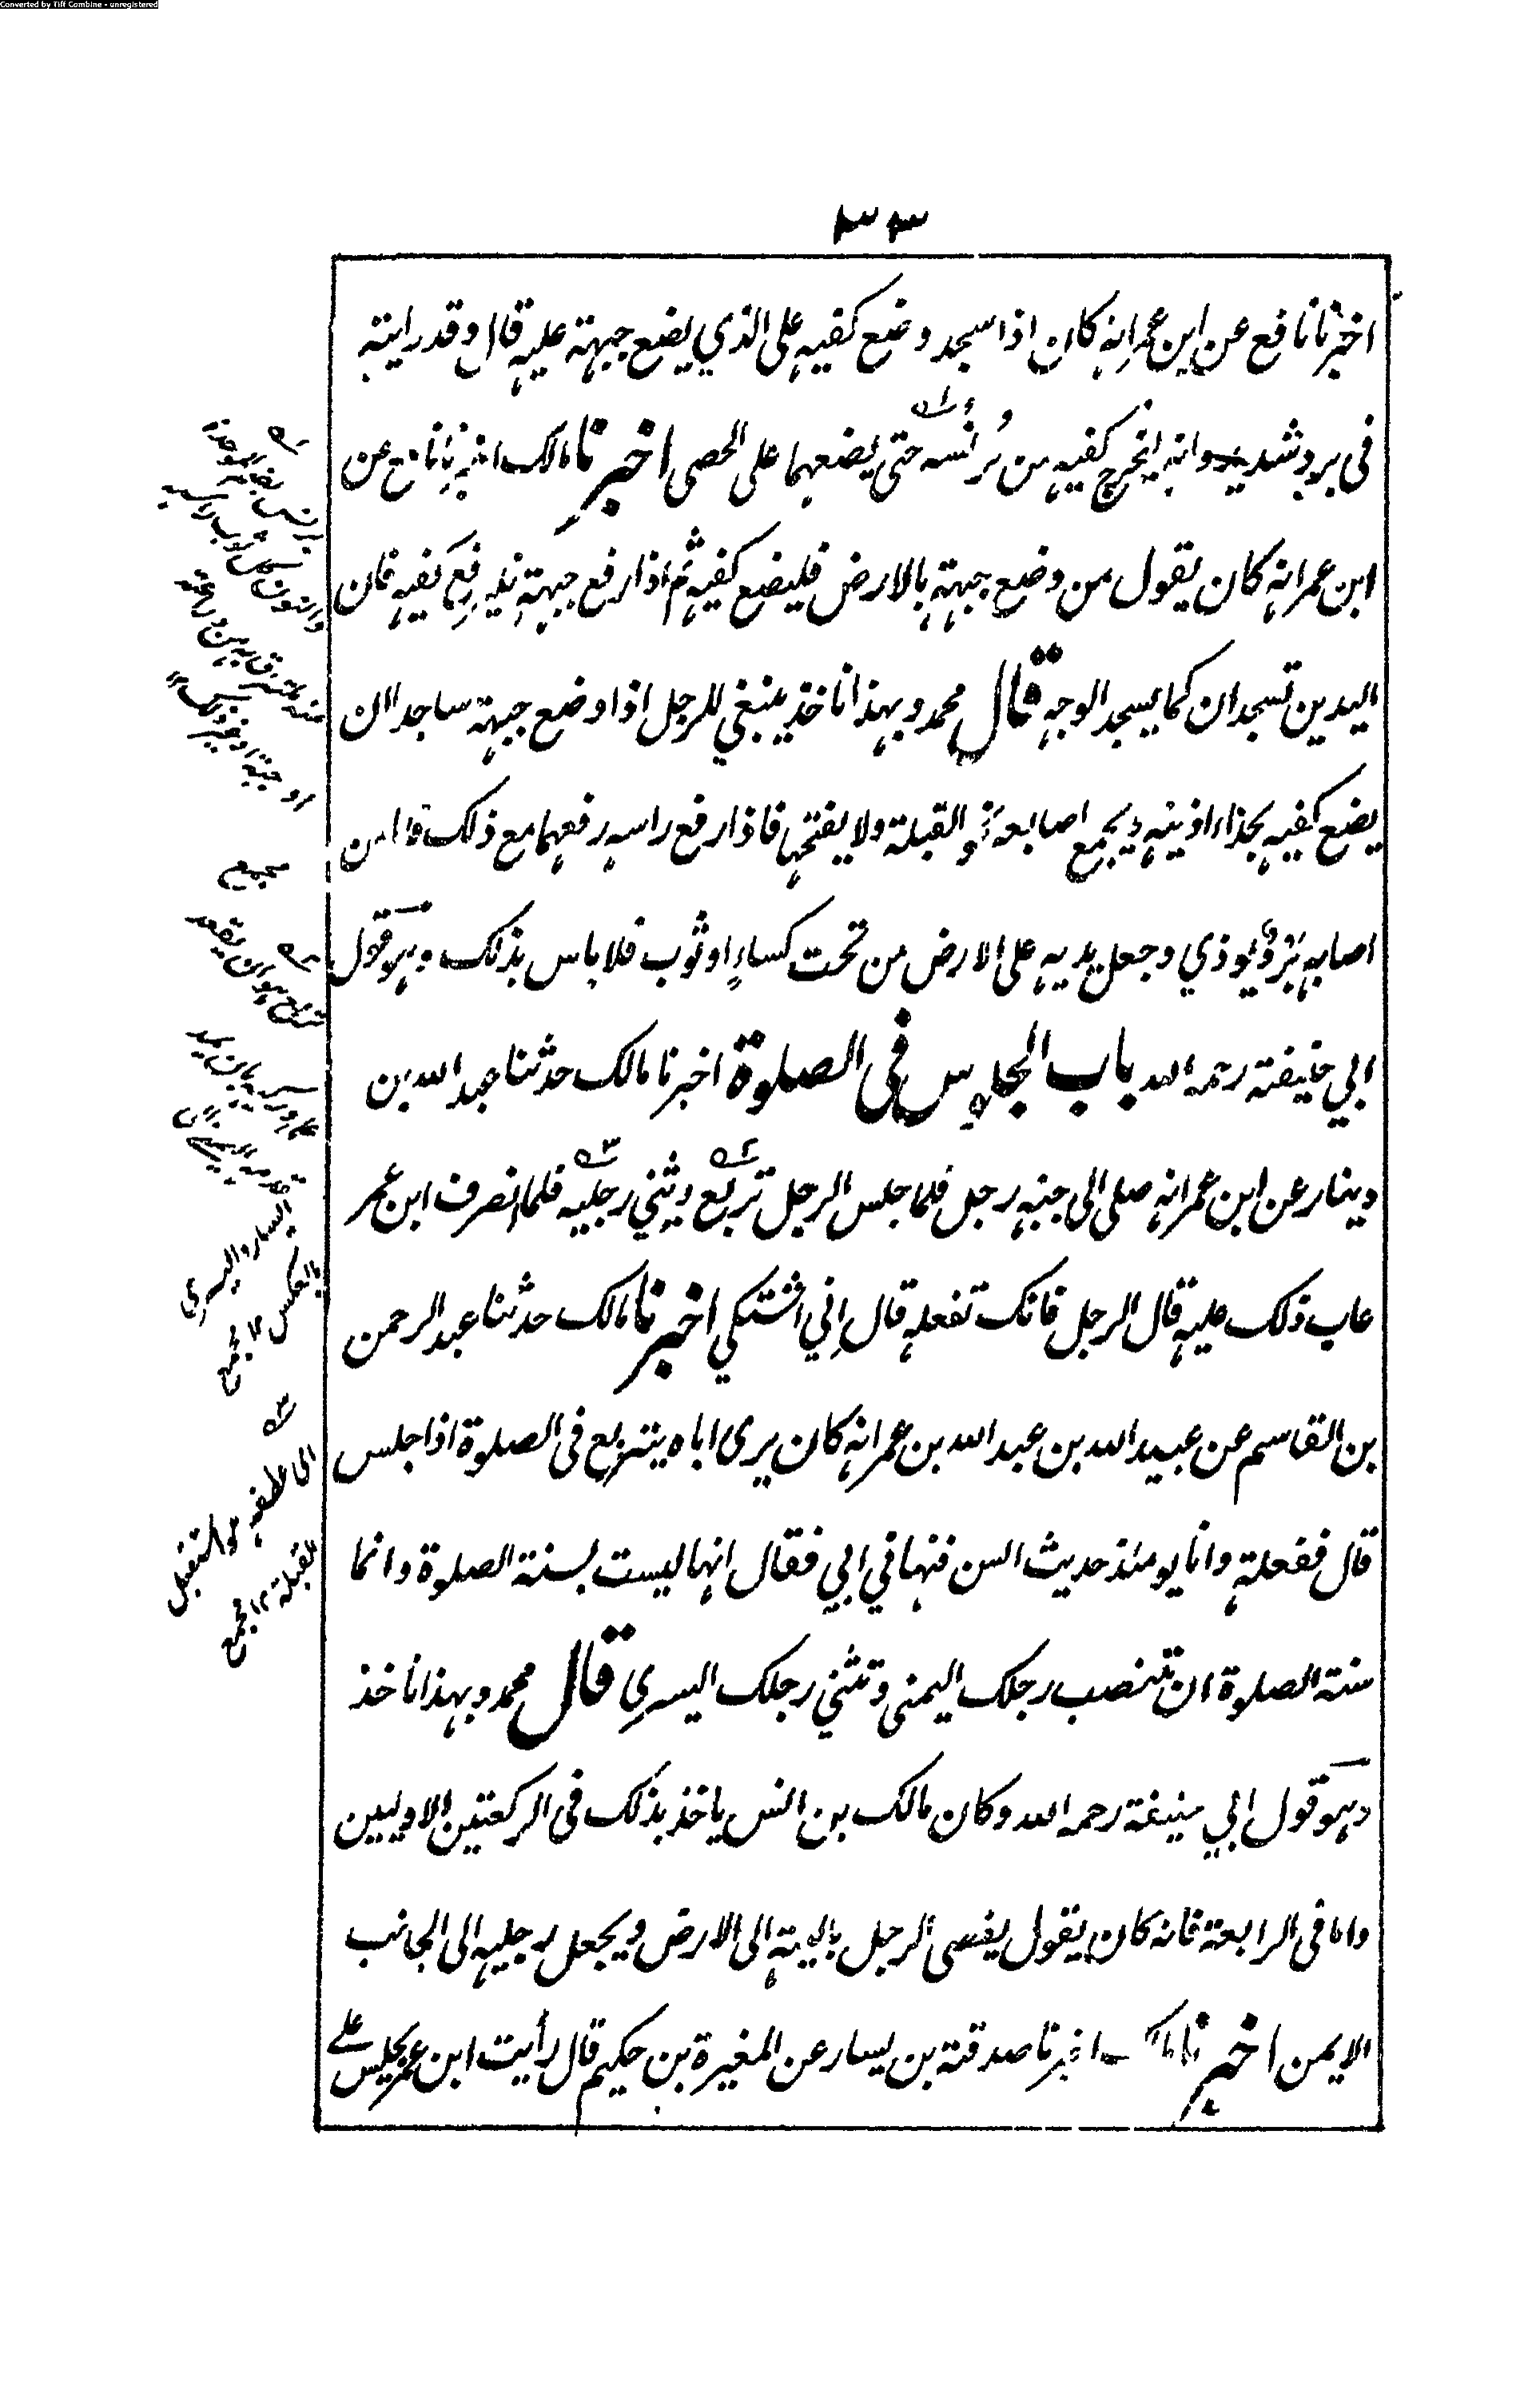 Converted by Tiff Combine - unregistered
اخبرنا نافع عن ابن عمر انه كان اذا سجد وضع كفيه على الذي يضع جبهته عليه قال وقد رايته
في برد شديد وانه ليخرج كفيه من بُرنسه حتى يضعهما على الحصى اخبرنا مالك اخبرنا نافع عن
ابن عمر انه كان يقول من وضع جبهته بالارض فليضع كفيه ثم اذا رفع جبهته فليرفع كفيه فان
اليدين تسجدان كما يسجد الوجه قال محمد وبهذا ناخذ ينبغي للرجل اذا وضع جبهته ساجدا ان
يضع كفيه بحذاء اذنيه ويجمع اصابعه نحو القبلة ولا يفتحها فاذا رفع راسه رفعهما مع ذلك فاما من
اصابه بَرْدٌ يوذي وجعل يديه على الارض من تحت كساءٍ او ثوب فلا باس بذلك وهو قول
ابي حنيفة رحمه الله باب الجلوس في الصلوة اخبرنا مالك حدثنا عبد الله بن
دينار عن ابن عمر انه صلى الى جنبه رجل فلما جلس الرجل تربع وثني رجليه فلما انصرف ابن عمر
عاب ذلك عليه قال الرجل فانك تفعله قال اِني اشتكي اخبرنا مالك حدثنا عبد الرحمن
بن القاسم عن عبيد الله بن عبد الله بن عمر انه كان يرى اباه يتربع في الصلوة اذا جلس
قال ففعلته وانا يومئذ حديث السن فنهاني ابي فقال انها ليست بسنة الصلوة وانما
سنة الصلوة ان تنصب رجلك اليمنى وتثني رجلك اليسرى قال محمد وبهذا ناخذ
وهو قول ابي حنيفة رحمه الله وكان مالك بن انس ياخذ بذلك في الركعتين الاوليين
واما في الرابعة فانه كان يقول يفضى الرجل باليته الى الارض ويجعل رجليه الى الجانب
الايمن اخبرنا مالك اخبرنا صدقة بن يسار عن المغيرة بن حكيم قال رأيت ابن عمر يجلس على
مجمع
تربع هو ان يقعد
اليسار واليسرى
بالعكس ١٢ مجمع
للقبلة ١٢ مجمع